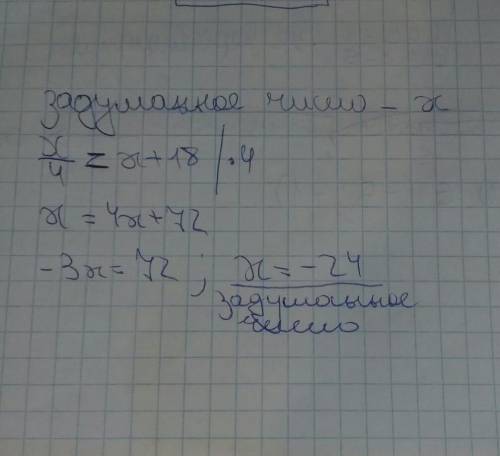 задуманное число - x
x/4 = x+18 | · 4
x = 4x+72
-3x = 72 ; x = -24
задуманное
число